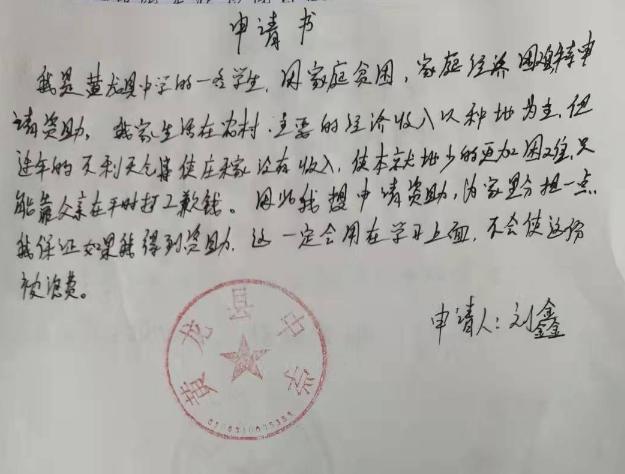 申请书
我是黄龙县中学的一名学生，因家庭贫困，家庭经济困难特申
请资助。我家生活在农村，主要的经济收入以种地为主，但
连年的不利天气等使庄稼没有收入，使本就地少的更加困难，只
能靠父亲在平时打工歉钱。因此我想申请资助，为家里分担一点
我保证如果我得到资助，这一定会用在学习上面，不会使这份
被浪费。
申请人：刘鑫鑫
黄龙县中学